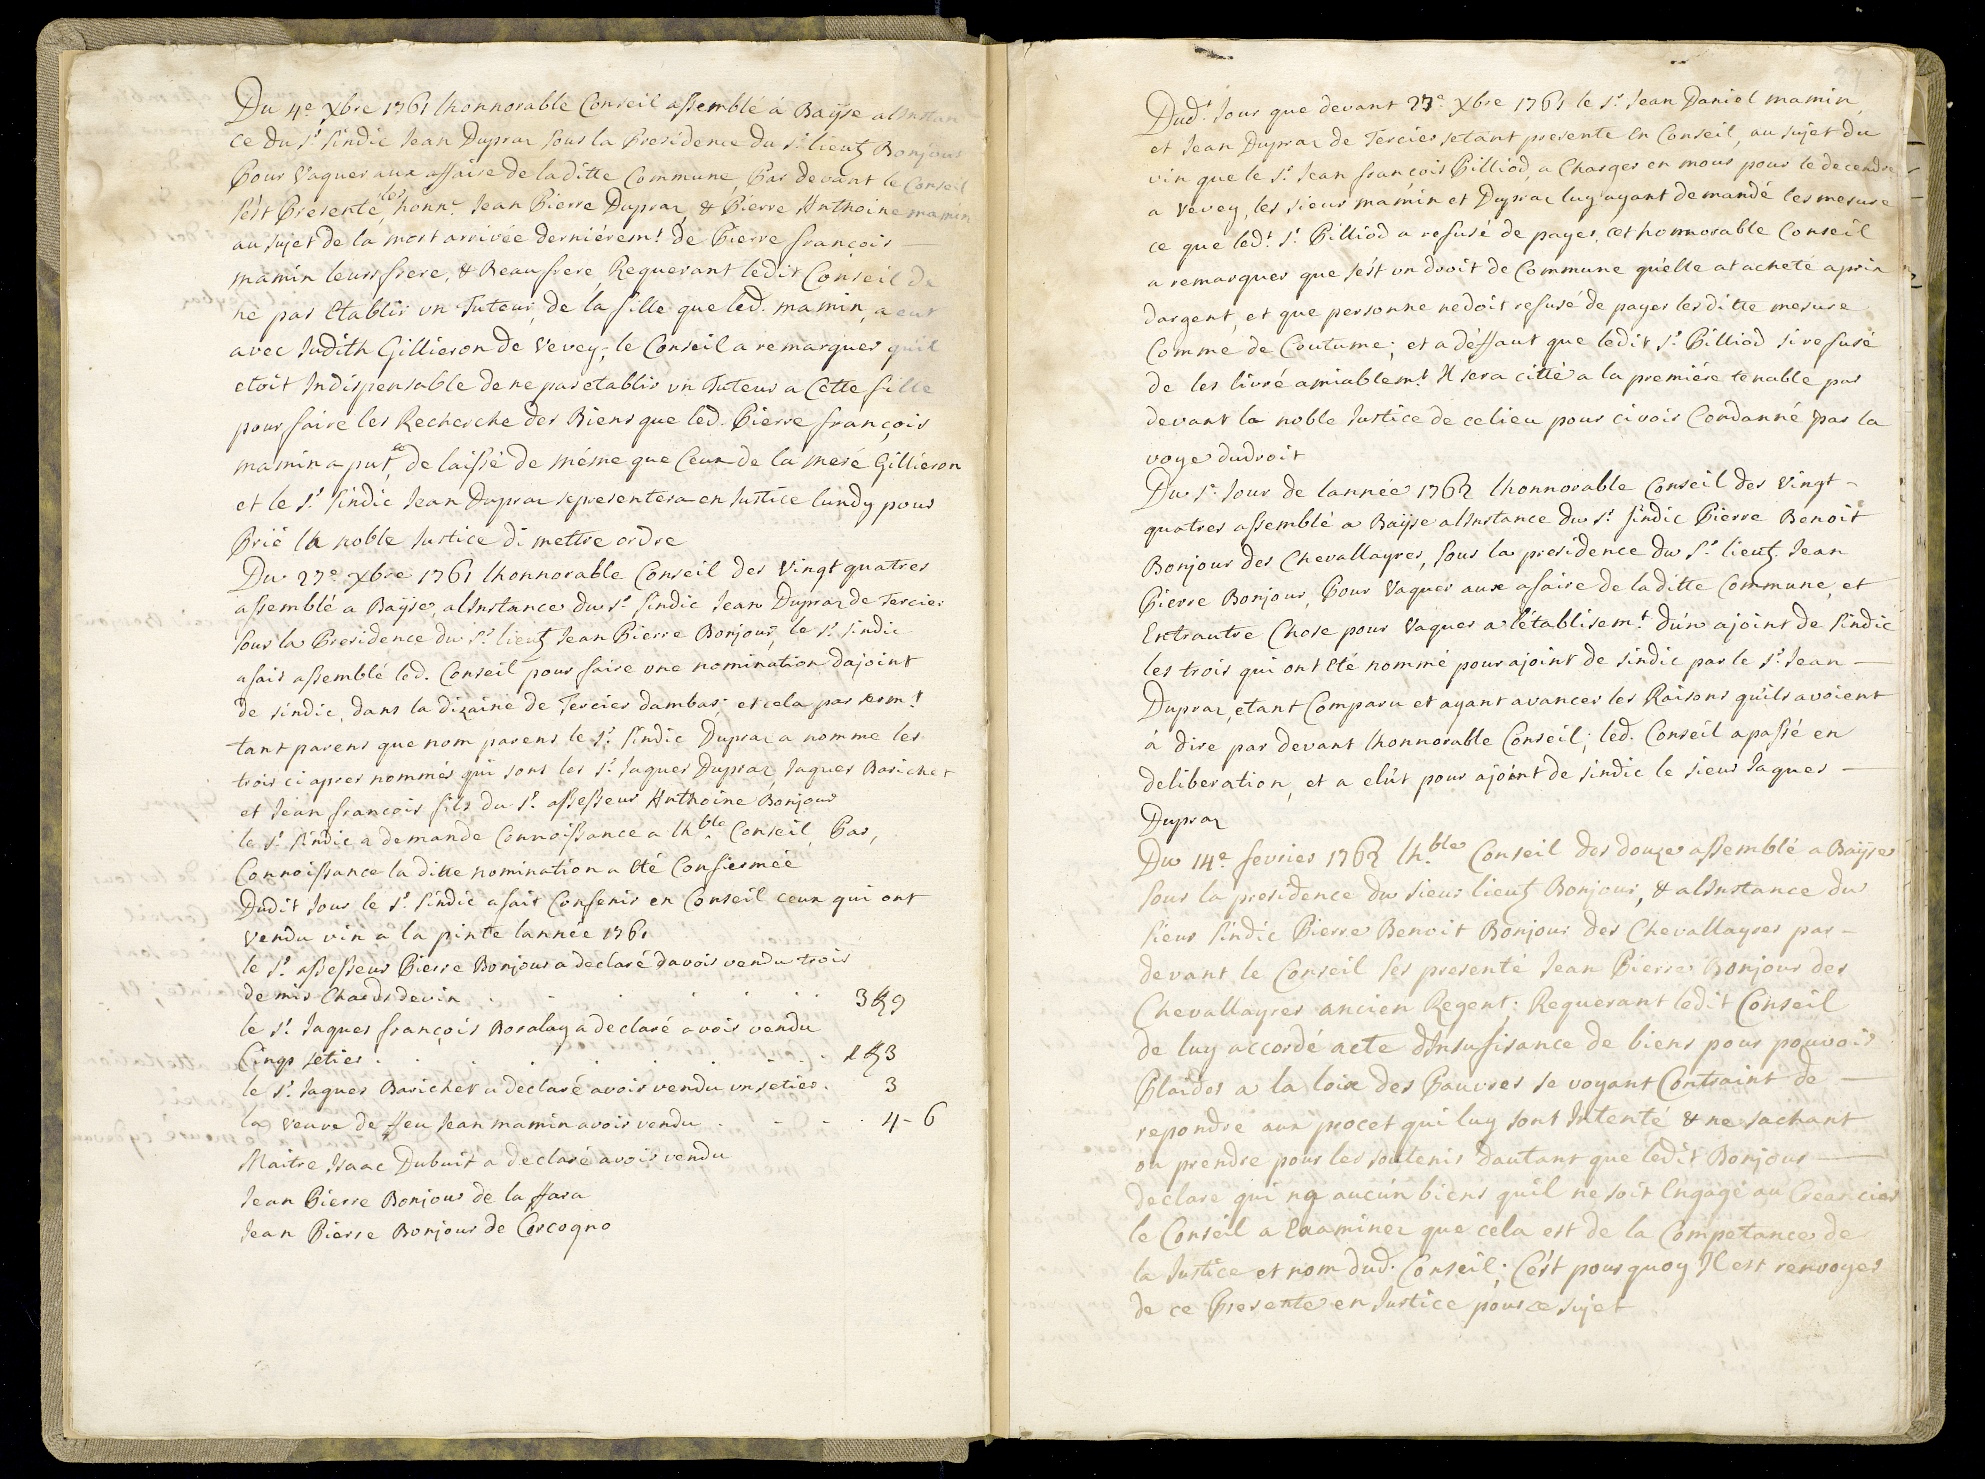 Du 4e. xbre 1761 lhonnorable Conseil assemblé à Bayse alInstan
ce du Sr. Sindic Jean Dupraz sous la Presidence du Sr. lieut. Bonjour
Pour Vaquer aux affaire de laditte Commune, Par devant le Conseil
sést Presenté, les honn.r Jean Pierre Dupraz, & Pierre Anthoine mamin
au sujet de la mort arrivée derniérem.t de Pierre francois
mamin leurs frere, & Beaufrere, Requerant ledit Conseil de
né pas Etablir un Tuteur, de la fille que led. mamin, a eut
avec Judith Gillieron de Vevey; le Conseil a remarquer quil
etoit Indispensable de ne pas etablir un Tuteur a Cette fille
pour faire les Recherche des Biens que led. Pierre françois
mamin a put, de laissé de même que Ceux de la meré Gillieron
et le Sr. Sindic Jean Dupraz sepresentera en Justice lundy pour
Prié la noble Justice di mettre ordre
Du 27e xbre 1761 lhonnorable Conseil des Vingt quatres
assemblé a Bayse, alInstance du Sr. Sindic Jean Dupraz de Tercier
sous la Presidence du Sr. lieut. Jean Pierre Bonjour, le Sr. Sindic
a fait assemblé led. Conseil pour faire une nomination dajoint
de sindic, dans la dizaine de Tercier dambas; et cela par serm.t
tant parens que nom parens le Sr. Sindic Dupraz a nomme les
trois ci apres nommés qui sont les Sr. Jaques Dupraz, Jaques Barichet
et Jean francois fils du Sr. assesseur Anthoine Bonjour
le Sr. Sindic a demande Connoissance a lh.ble Conseil, Par,
Connoissance la ditte nomination a Eté Confiermée
Dudit Jour le Sr. Sindic a fait Confenir en Conseil ceux qui ont
vendu vin a la pinte lannée 1761
le Sr. assesseur Pierre Bonjour a declaré davoir vendu trois
demis Chards de vin 3 9
le Sr. Jaques françois Boralay a declaré avoir vendu
Cinqs setier 3
le Sr. Jaques Barichet a declaré avoir vendu un setier. 3
la Veuve de ffeu Jean mamin avoir vendu 4-6
Maitre Isaac Dubuit a declaré avoir vendu
Jean Pierre Bonjour de la ffara
Jean Pierre Bonjour de Corcogno
Dud.t Jour que devant 27e xbre 1761 le Sr. Jean Daniel mamin
et Jean Dupraz de Tercier setant presente en Conseil, au sujet du
vin que le Sr. Jean françois Pilliod, a Charger en mour pour le decendre
a Vevey, les sieur mamin et Dupraz luy ayant demandé les mesure
ce que led.t Sr. Pilliod a refusé de payer, cet honnorable Conseil
a remarquer que sést un droit de Commune quélle at acheté a prix
dargent, et que personne nedoit refusé de payer lesditte mesure
Comme de Coutume; et a déffaut que ledit Sr. Pilliod si refusé
de les livré amiablem.t Il sera citté a la premiére tenable par
devant la noble Justice de ce lieu pour ci voir Condanné par la
voye dudroit
Du 1er Jour de lannée 1762 lhonnorable Conseil des Vingt-
quatres assemblé a Bayse alInstance du Sr. Sindic Pierre Benoit
Bonjour des Chevallayres, sous la presidence du Sr. lieut. Jean
Pierre Bonjour, Pour Vaquer aux afaire de laditte Commune, et
Entrautre Chose pour Vaquer a létablisem.t dún ajoint de Sindic
les trois qui ont Eté nommé pour ajoint de sindic par le Sr. Jean
Dupraz, etant Comparu et ayant avancer les Raisons quils avoient
à dire par devant lhonnorable Conseil; led. Conseil a passé en
deliberation, et a elût pour ajoint de sindic le sieur Jaques
Dupraz
Du 14e fevrier 1762 lh.ble Conseil des douze assemblé a Bayse
Sous la presidence du sieur lieut. Bonjour, & alInstance du
Sieur Sindic Pierre Benoit Bonjour des Chevallayres par-
devant le Conseil ses presenté Jean Pierre Bonjour des
Chevallayres ancien Regent; Requerant ledit Conseil
de luy accordé acte dInsufisance de biens pour pouvoir
Plaider a la loix des Pauvres se voyant Contraint de
repondre aux procet qui luy sont Intenté & ne sachant
ou prendre pour les soutenir dautant que ledit Bonjour
declare qui na aucún biens quil ne soit Engagé au Creancier
le Conseil a Examiner que cela est de la Competance de
la Justice et nom dud. Conseil; Cést pourquoy Il est renvoyer
de ce Presente en Justice pour ce sujet